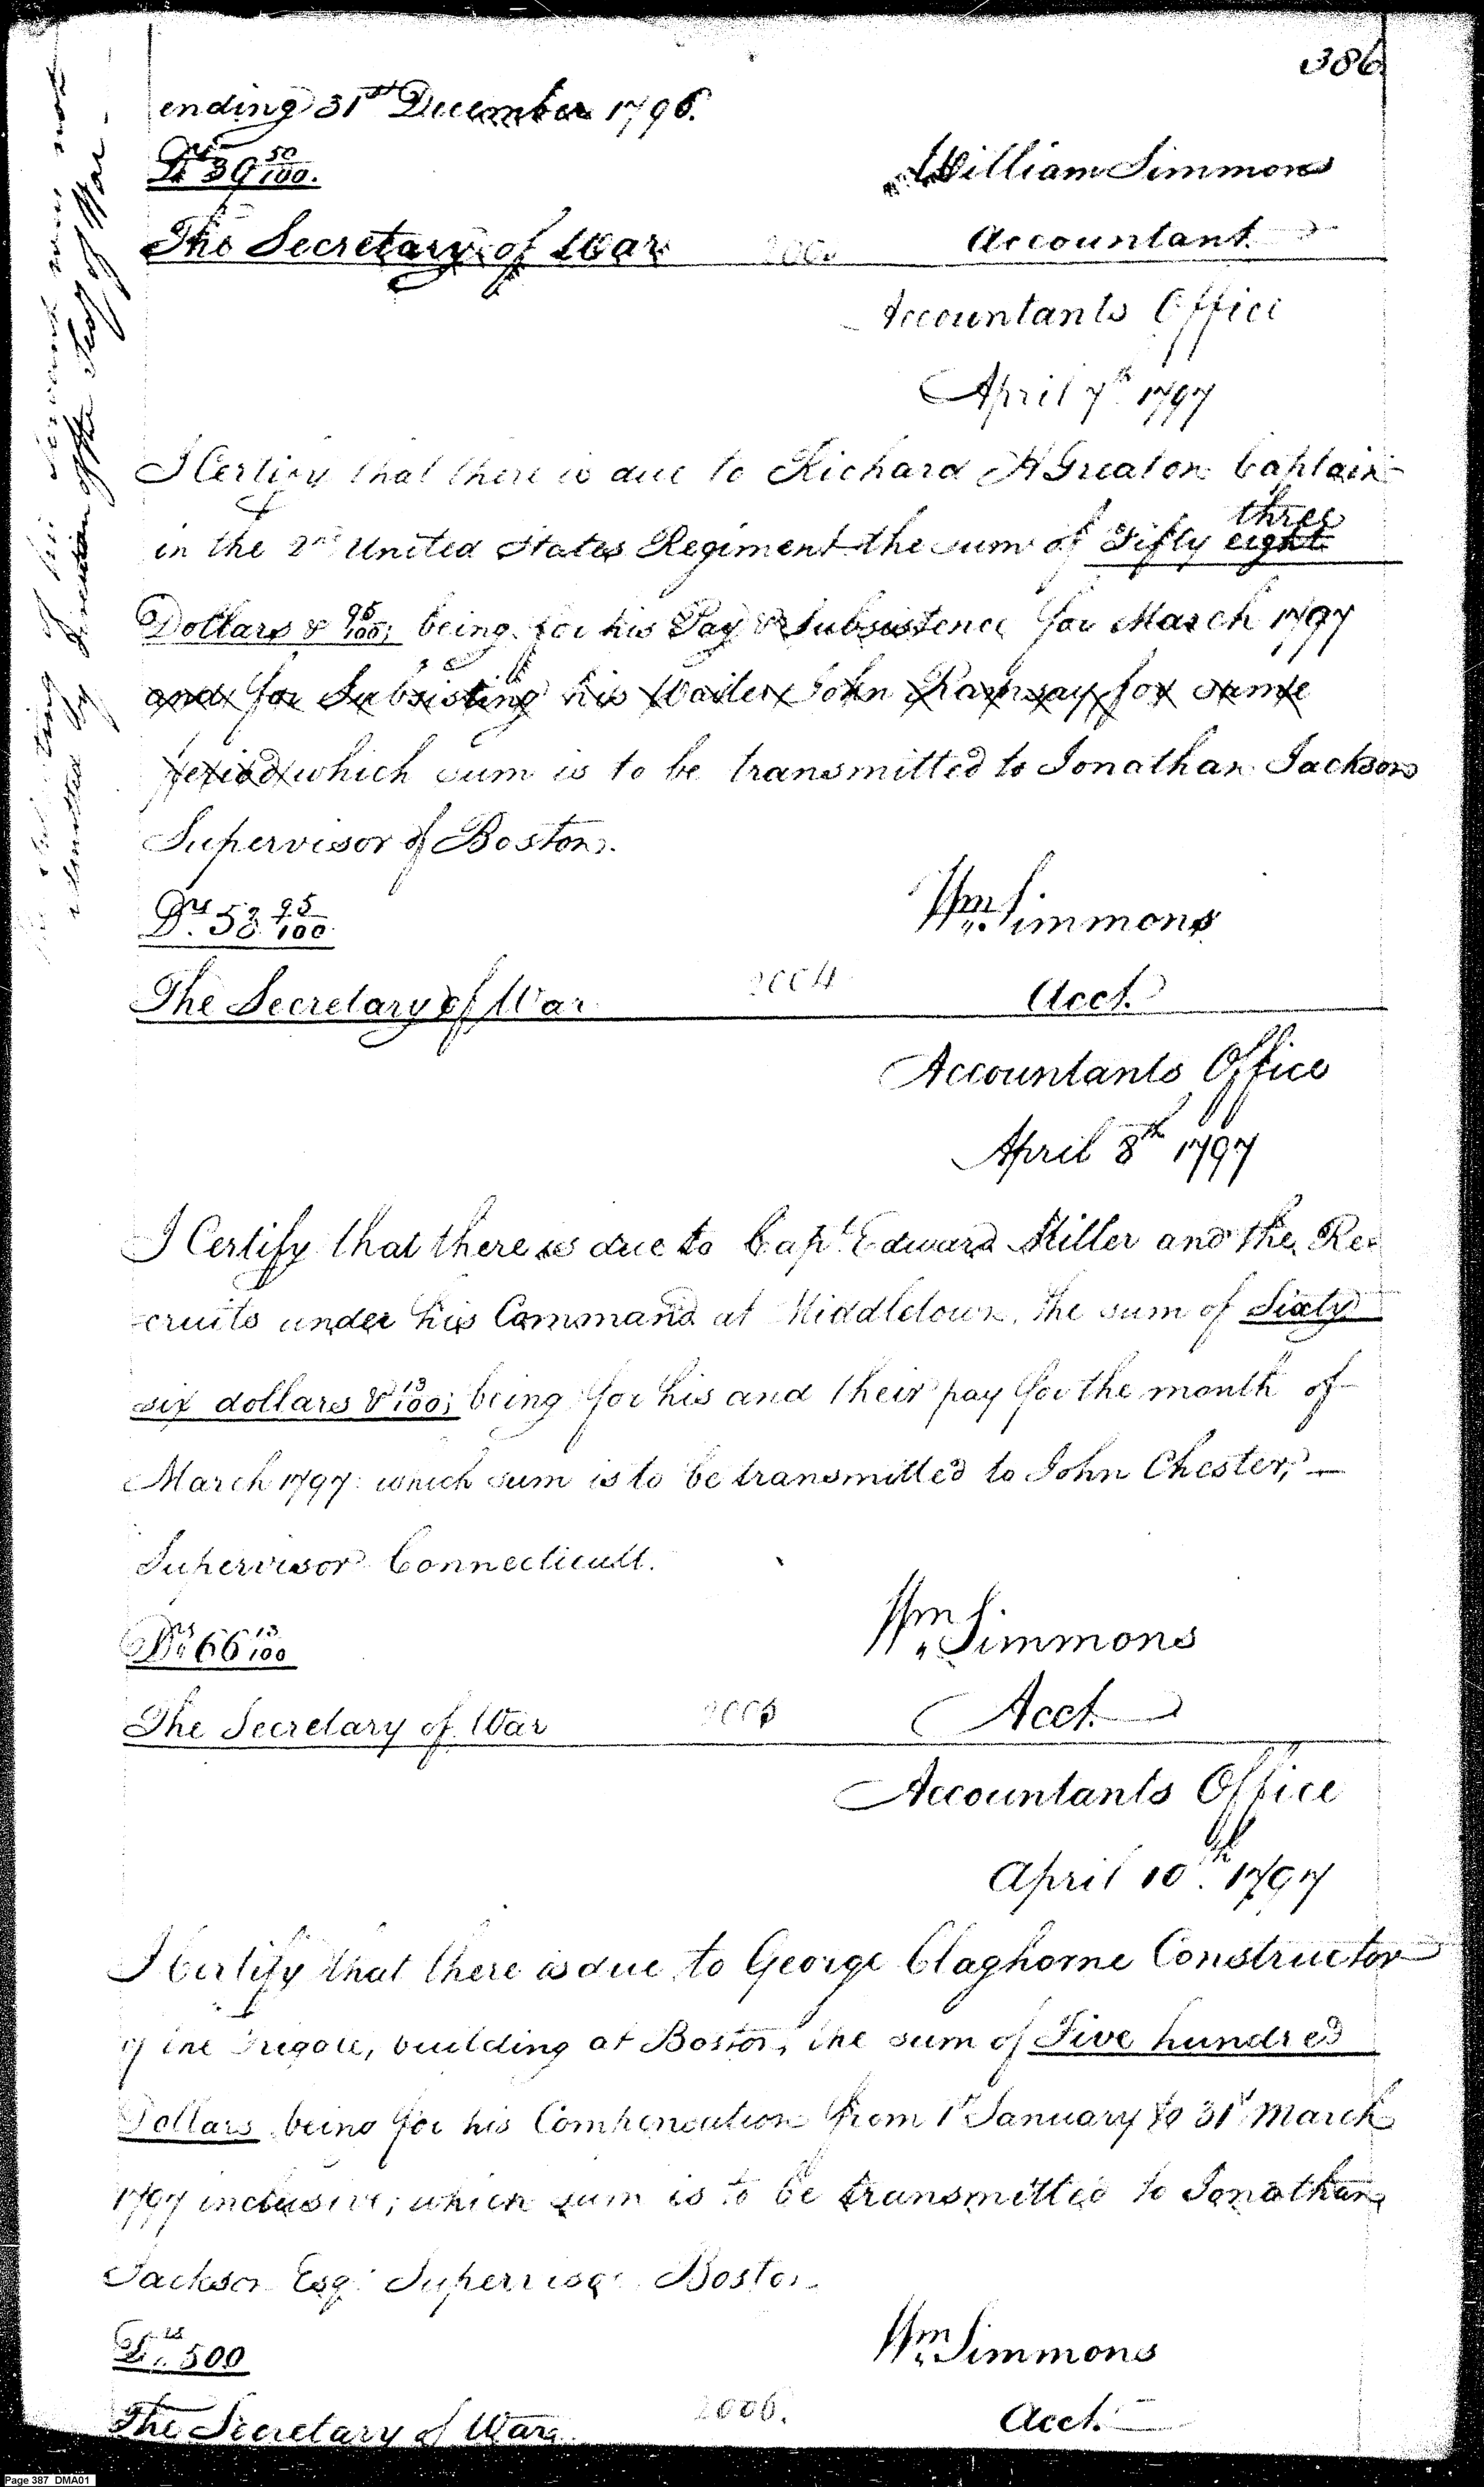 386
ending 31st December 1796.
Drs 39 50/100.
William Simmons
The Secretary of War
Accountant
Accountants Office
April 7th 1797
I Certify that there is due to Richard H Greaton Captain
in the 2nd United States Regiment the sum of Fifty eight three
Dollars & 95/100; being for his Pay & Subsistence for March 1797
and for Subsisting his Waiter John Ramsay for same
period which sum is to be transmitted to Jonathan Jackson
Supervisor of Boston.
Drs. 53 95/100
Wm. Simmons
The Secretary of War
2004
Acct.
Accountants Office
April 8th 1797
I Certify that there is due to Capt. Edward Miller and the Re-
cruits under his Command at Middletown, the sum of Sixty
six dollars & 13/100; being for his and their pay for the month of
March 1797: which sum is to be transmitted to John Chester,
Supervisor Connecticutt.
Drs 66 13/100
Wm. Simmons
The Secretary of War
2005
Acct.
Accountants Office
April 10th. 1797
I Certify that there is due to George Claghorne Constructor
of the Frigate, building at Boston, the sum of Five hundred
Dollars being for his Compensation from 1st January to 31st March
1797 inclusive; which sum is to be transmitted to Jonathan
Jackson Esqr. Supervisor Boston
Drs. 500
Wm. Simmons
The Secretary of War
2006.
Acct.
of his servant was not
admitted by direction of the Secy of War.
Page 387 DMA01